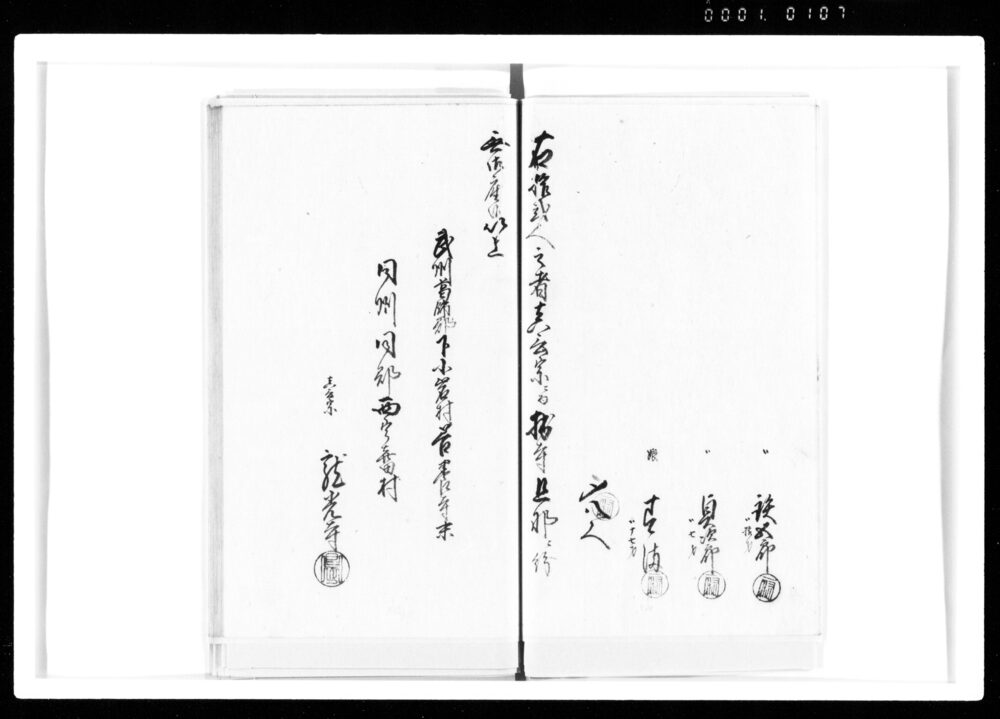 0001. 0107
〃
鉄五郎
〃
貞次郎
〃七才
娘
〃十七才
〆八人
之者真言宗ニ而拙寺旦那ニ紛
無御座候以上
武州葛飾郡下小岩村善養寺末
同州同郡西宇喜田村
真言宗
龍光寺